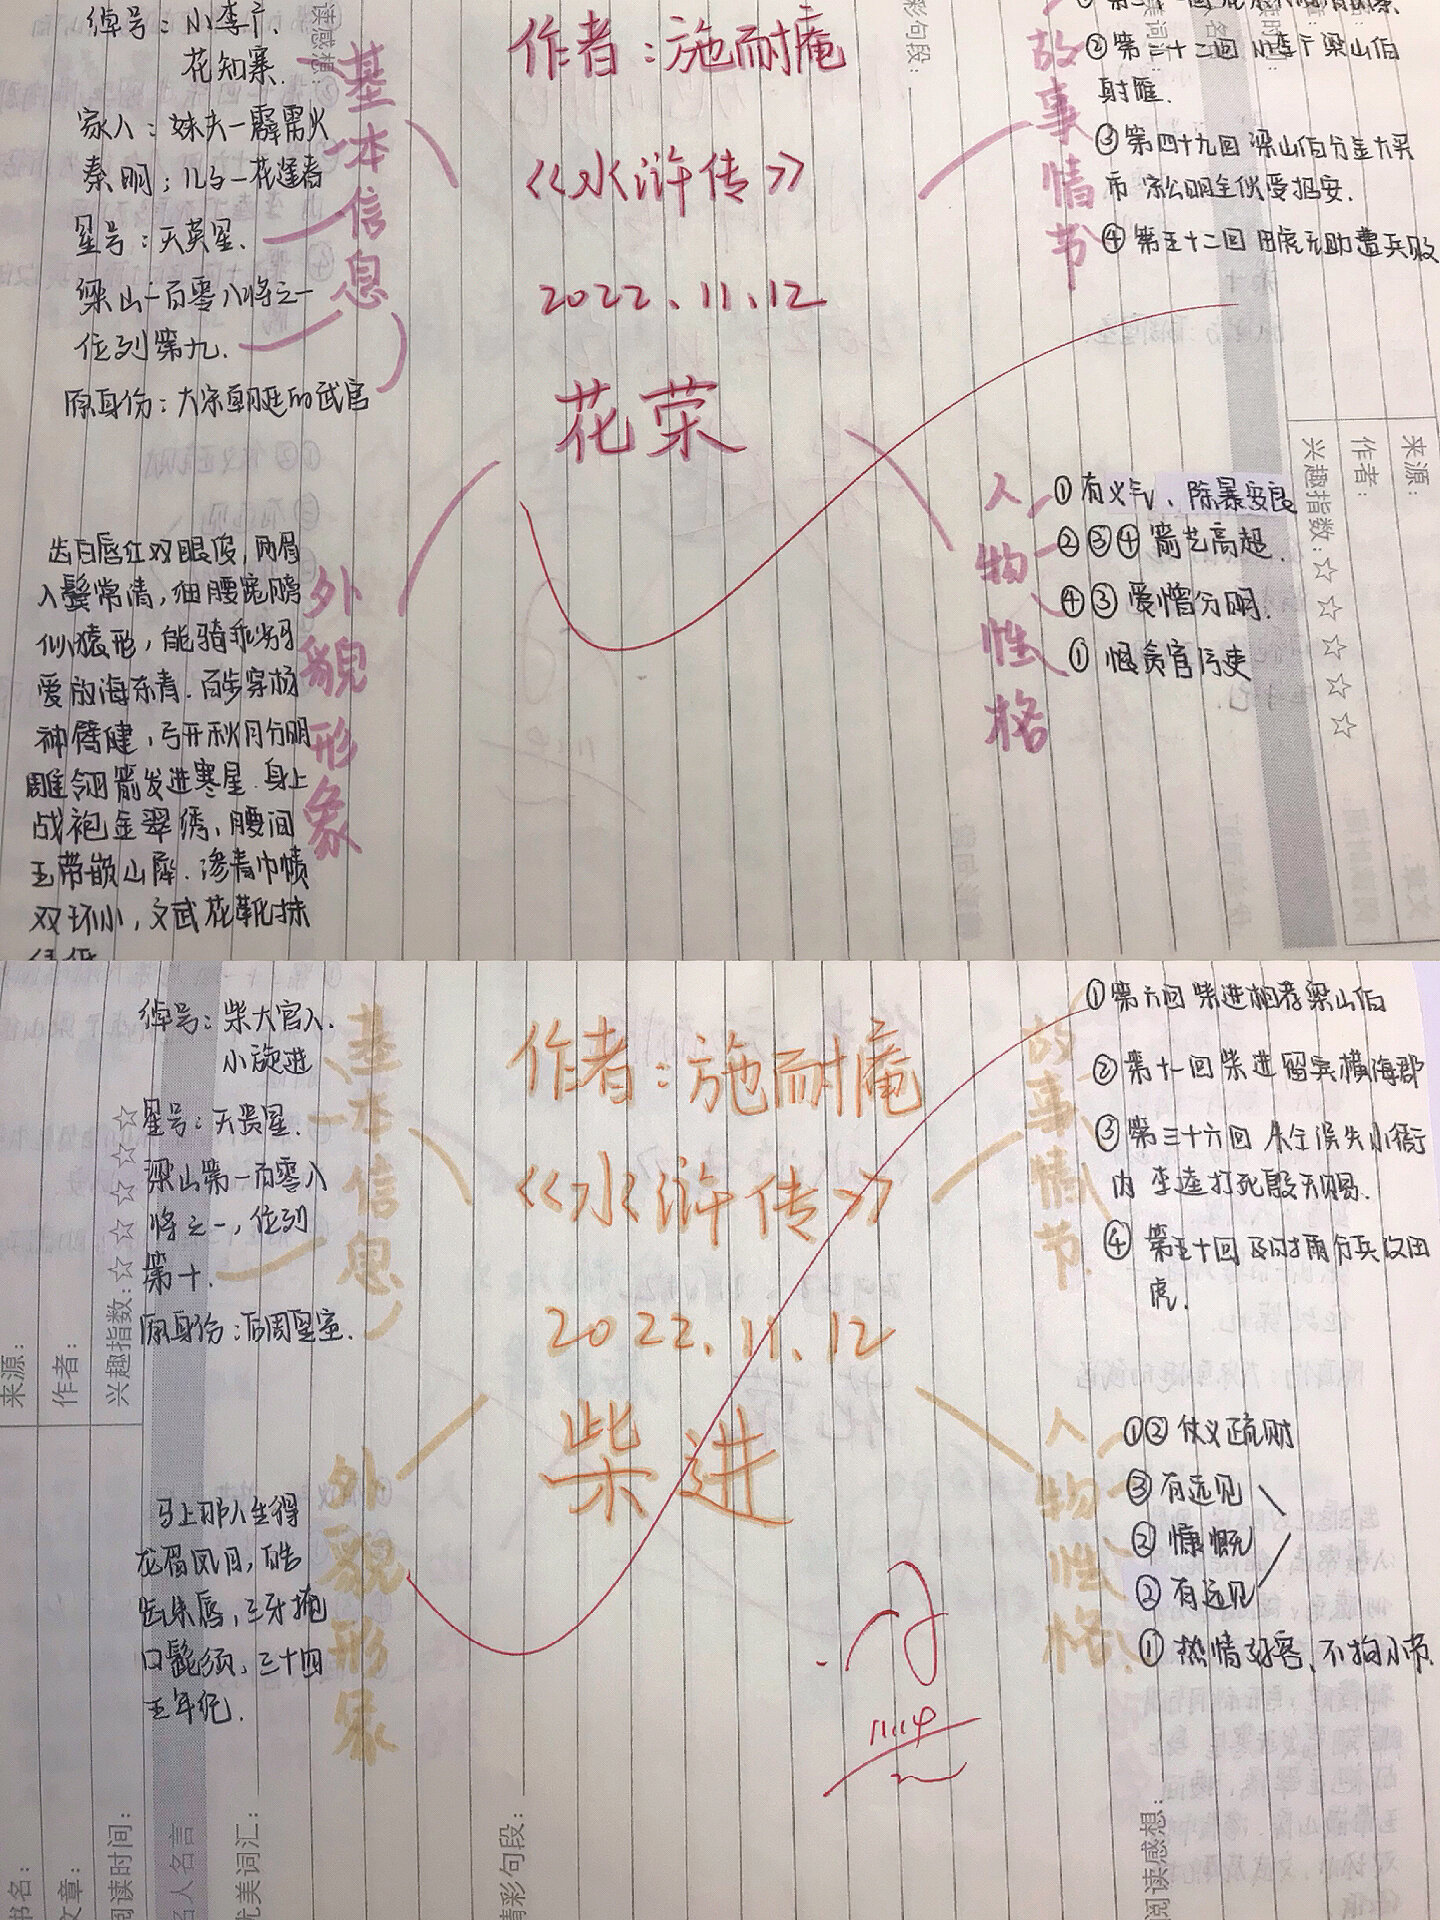 绰号：小李广.
花知寨.
家人：妹夫—霹雳火
秦明；儿子—花逢春
星号：天英星.
梁山一百零八将之一
位列第九.
原身份：大宋朝廷的武官
基本信息
作者：施耐庵
《水浒传》
2022.11.12
花荣
故事情节
②第三十二回 小李广梁山伯
射雁.
③第四十九回 梁山伯分金大买
市 宋公明全伙受招安.
④第五十二回 田虎无助遭兵败
外貌形象
齿白唇红双眼俊，两眉
入鬓常清，细腰宽膀
似猿形，能骑乖劣马
爱放海东青.百步穿杨
神臂健，弓开秋月分明
雕翎箭发迸寒星.身上
战袍金翠绣，腰间
玉带嵌山犀.渗青巾帻
双环小，文武花靴抹
人物性格
①有义气、除暴安良
②③④箭艺高超.
④③爱憎分明.
①恨贪官污吏
来源：
作者：
兴趣指数：☆☆☆☆☆
绰号：柴大官人.
小旋进
星号：天贵星.
梁山第一百零八
将之一，位列
第十.
原身份：后周皇室.
基本信息
作者：施耐庵
《水浒传》
2022.11.12
柴进
故事情节
①第六回 柴进相荐梁山伯
②第十一回 柴进留宾横海郡
③第三十六回 朱仝误失小衙
内 李逵打死殷天赐.
④第五十回 及时雨分兵攻田
虎.
外貌形象
马上那人生得
龙眉凤目，皓
齿朱唇，三牙掩
口髭须，三十四
五年纪.
人物性格
①②仗义疏财
③有远见
②慷慨
②有远见
①热情好客、不拘小节.
来源：
作者：
兴趣指数：☆☆☆☆☆
书名：
文章：
阅读时间：
名人名言
优美词汇：
精彩句段：
阅读感想：